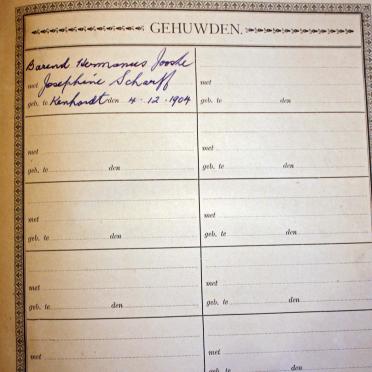 GEHUWDEN.
Barend Hermanus Jooste
met Josephine Scharff
geb. te Kenhardt den 4-12-1904
met
geb. te den
met
geb. te den
met
geb. te den
met
geb. te den
met
geb. te den
met
geb. te den
met
geb. te den
met
met
geb. te den